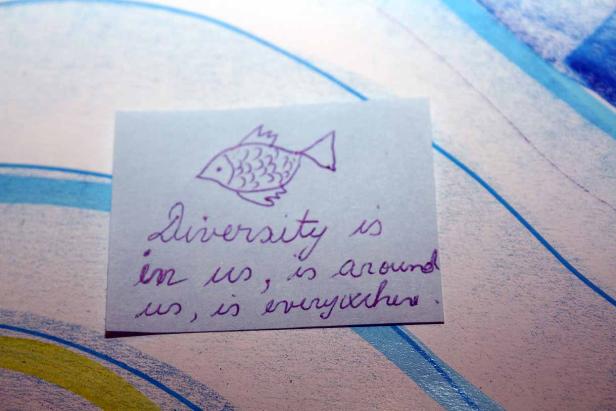 Diversity is
in us, is around
us, is everywhere.